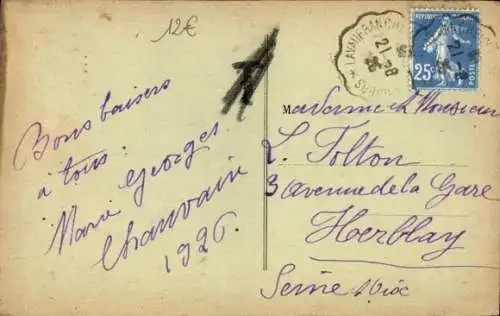 12€
Bons baisers
à tous.
Marie Georges
Chauvain
1926.
M
Madame & Monsieur
L. Tolton
3 avenue de la Gare
Herblay
Seine & Oise
REPUBLIQUE FRANÇAISE
25c
POSTES
21-28